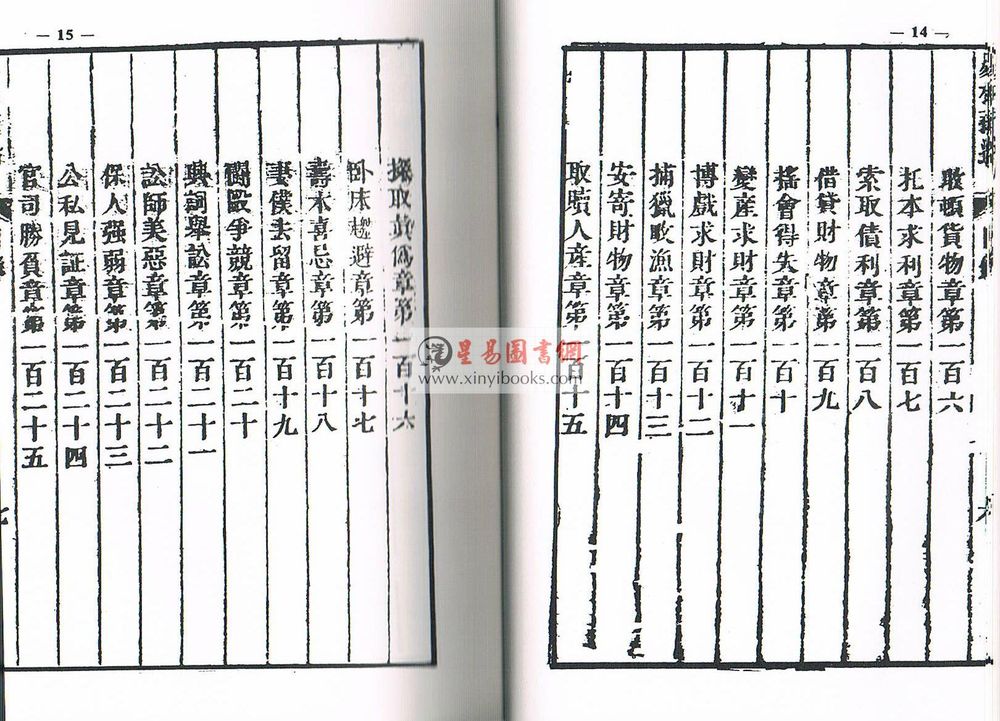 — 14 —
敢頓貨物章第一百六
托本求利章第一百七
索取債利章第一百八
借貸財物章第一百九
搖會得失章第一百十
變産求財章第一百十一
博戲求財章第一百十二
捕獵畋漁章第一百十三
安寄財物章第一百十四
取贖人産章第一百十五
— 15 —
取真偽章第一百十六
卧床趨避章第一百十七
壽木喜忌章第一百十八
妻僕去留章第一百十九
鬬毆爭競章第一百二十
興詞舉訟章第一百二十一
訟師美惡章第一百二十二
保人强弱章第一百二十三
公私見証章第一百二十四
官司勝負章第一百二十五
星易圖書網
www.xinyibooks.com